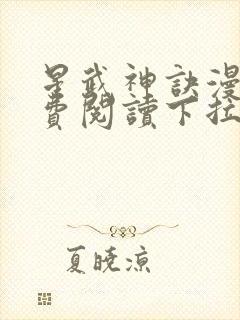 星武神訣漫
費閱讀下拉
夏曉涼